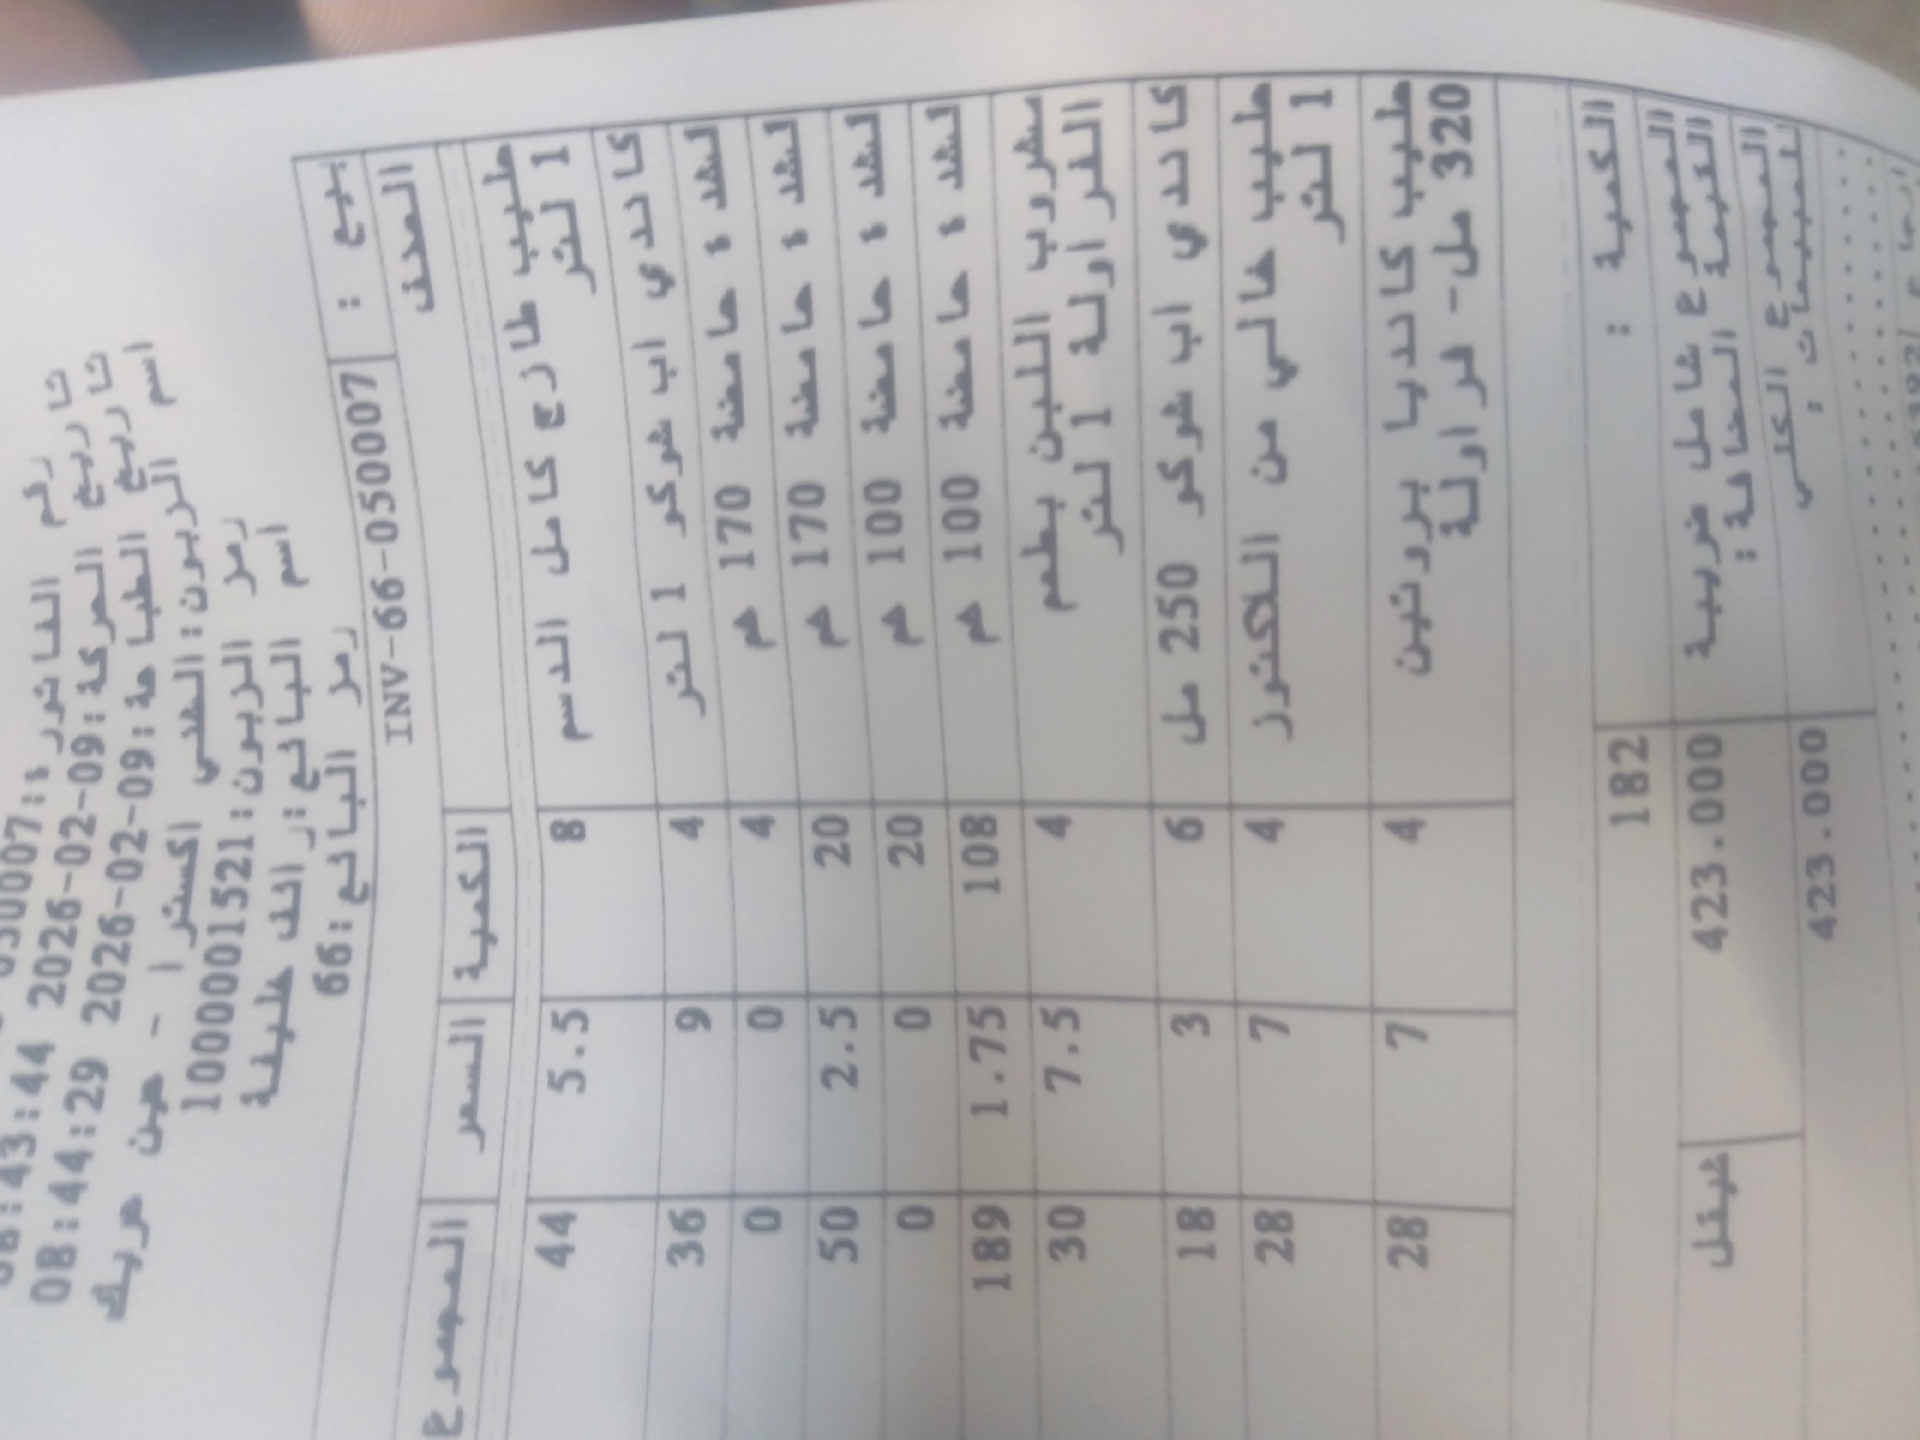 رقم الفاتورة: 050007
تاريخ الحركة: 2026-02-09 08:43:44
تاريخ الطباعة: 2026-02-09 08:44:29
اسم الزبون: الهدي اكسترا - عين عريك
رمز الزبون: 1000001521
اسم البائع: رائف خليفة
رمز البائع: 66
بيع : INV-66-050007
الصنف الكمية السعر المجموع
حليب طازج كامل الدسم 8 5.5 44
1 لتر
كاندي اب شوكو 1 لتر 4 9 36
لبنة حامضة 170 غم 4 0 0
لبنة حامضة 170 غم 20 2.5 50
لبنة حامضة 100 غم 20 0 0
لبنة حامضة 100 غم 108 1.75 189
مشروب اللبن بطعم 4 7.5 30
الفراولة 1 لتر
كاندي اب شوكو 250 مل 6 3 18
حليب خالي من اللاكتوز 4 7 28
1 لتر
حليب كانديا بروتين 4 7 28
320 مل- فراولة
الكمية : 182
المجموع شامل ضريبة 423.000 شيقل
القيمة المضافة :
المجموع الكلي 423.000
للمبيعات :